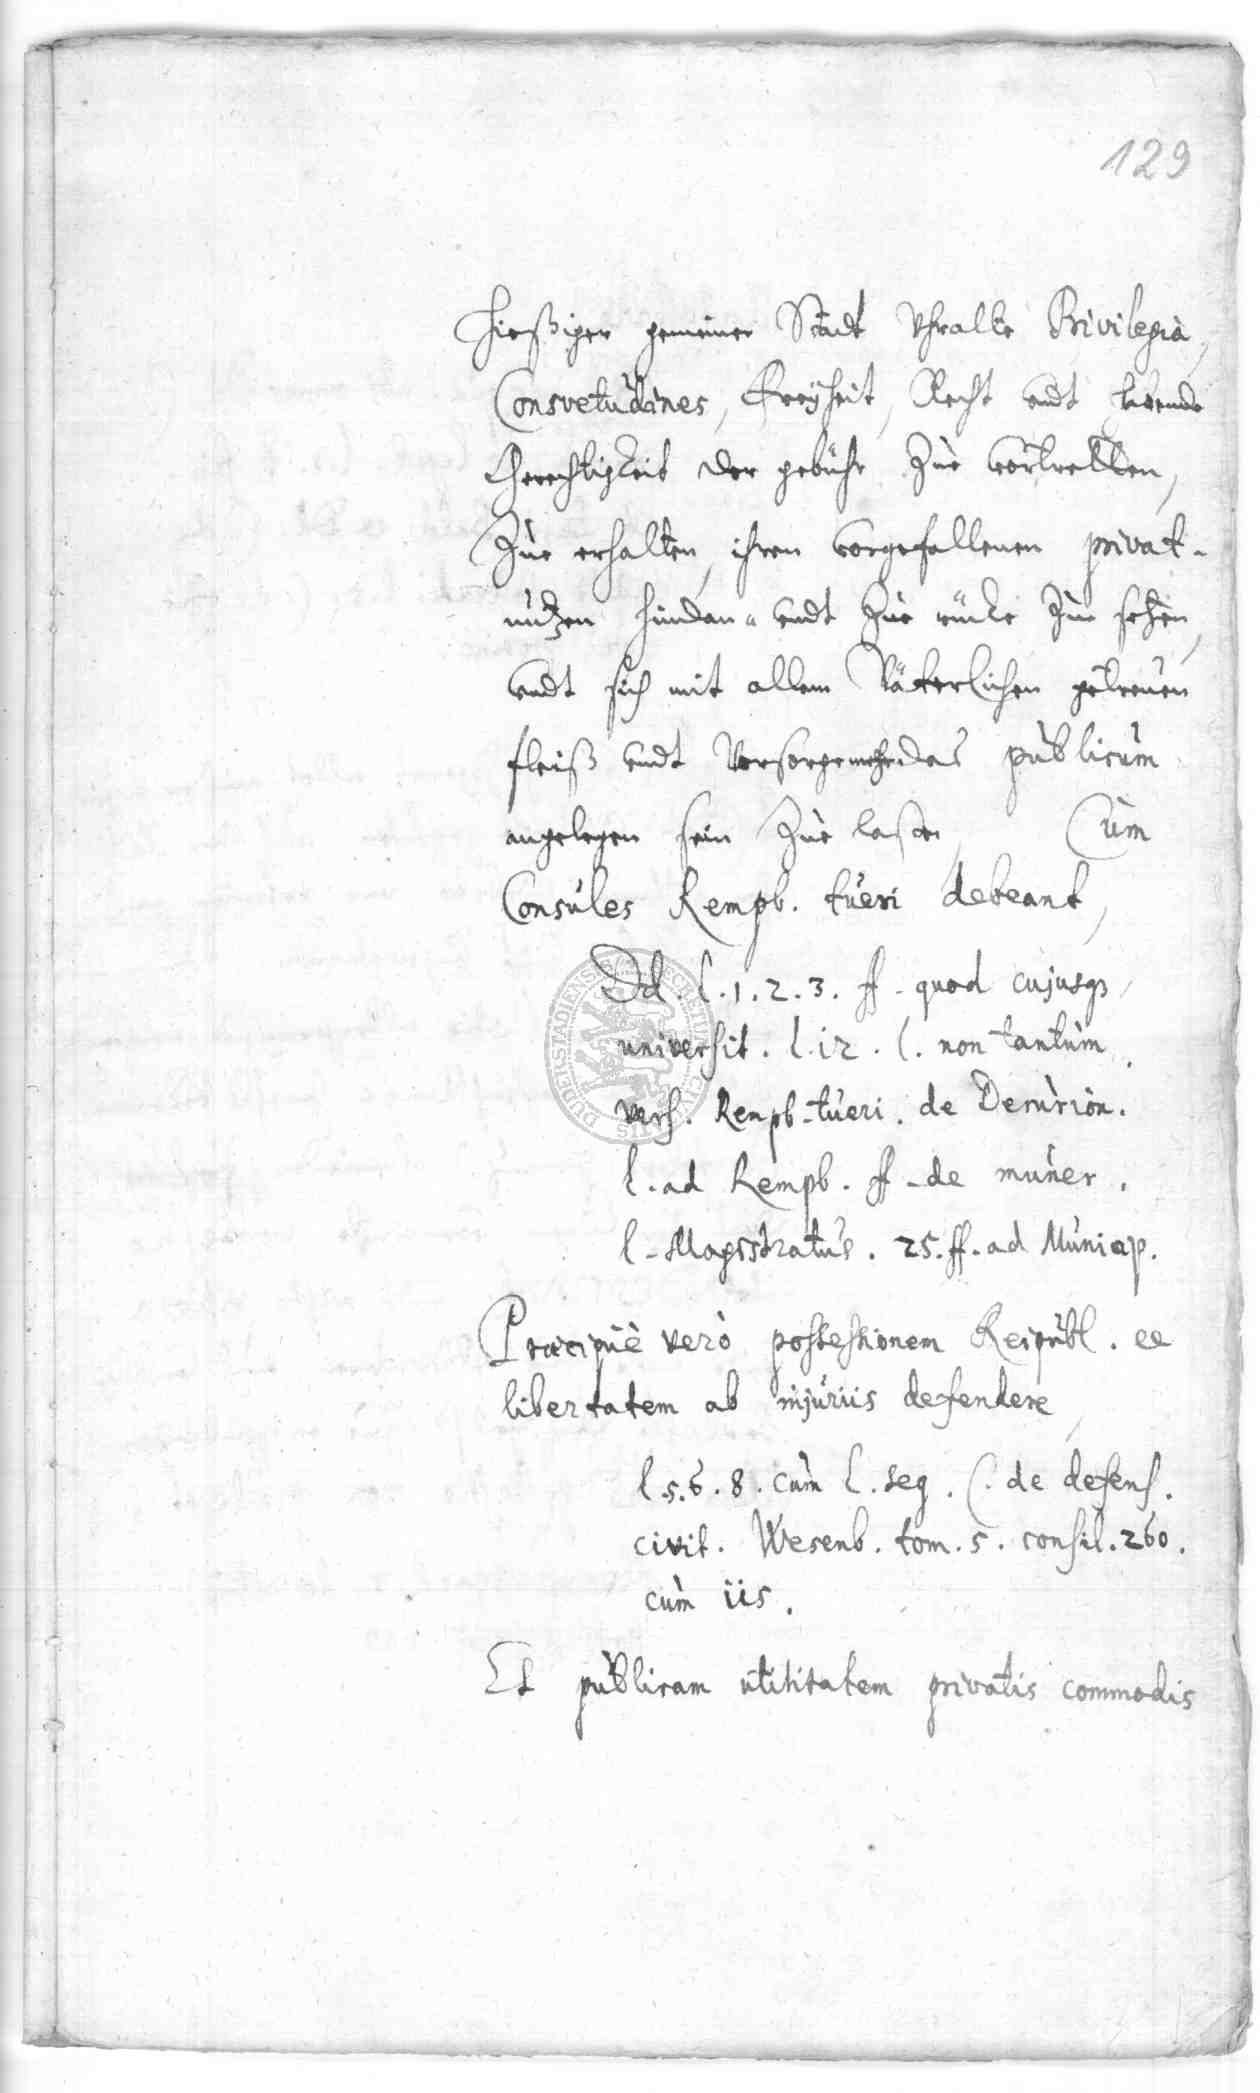 129
hießiger gemeiner Stadt Vhralte Privilegia,
Consvetudines, Freyheit, Recht undt habende
Gerechtigkeit der gebühr Zue vortretten,
Zue erhalten, ihren vorgefallenen privat-
nutzen hindan- undt Zue rücke Zue setzen,
undt sich mit allem Väterlichen getreuen
fleiß undt Vorsorge das publicum
angelegen sein Zue laßen, Cum
Consules Rempb. tueri debeant,
Dd. l. 1. 2. 3. ff. quod cujusq,
universit. l. 12. C. non tantum,
vers. Rempb. tueri. de Decurion.
l. ad Rempb. ff. de muner.
l. Magistratus. 25. ff. ad Municip.
Praecipuè verò possessionem Reipubl. ee
libertatem ab injuriis defendere,
l. 5. 6. 8. cum l. seq. C. de defens.
civit. Wesenb. tom. 5. consil. 260.
cum iis.
Et publicam utilitatem privatis commodis